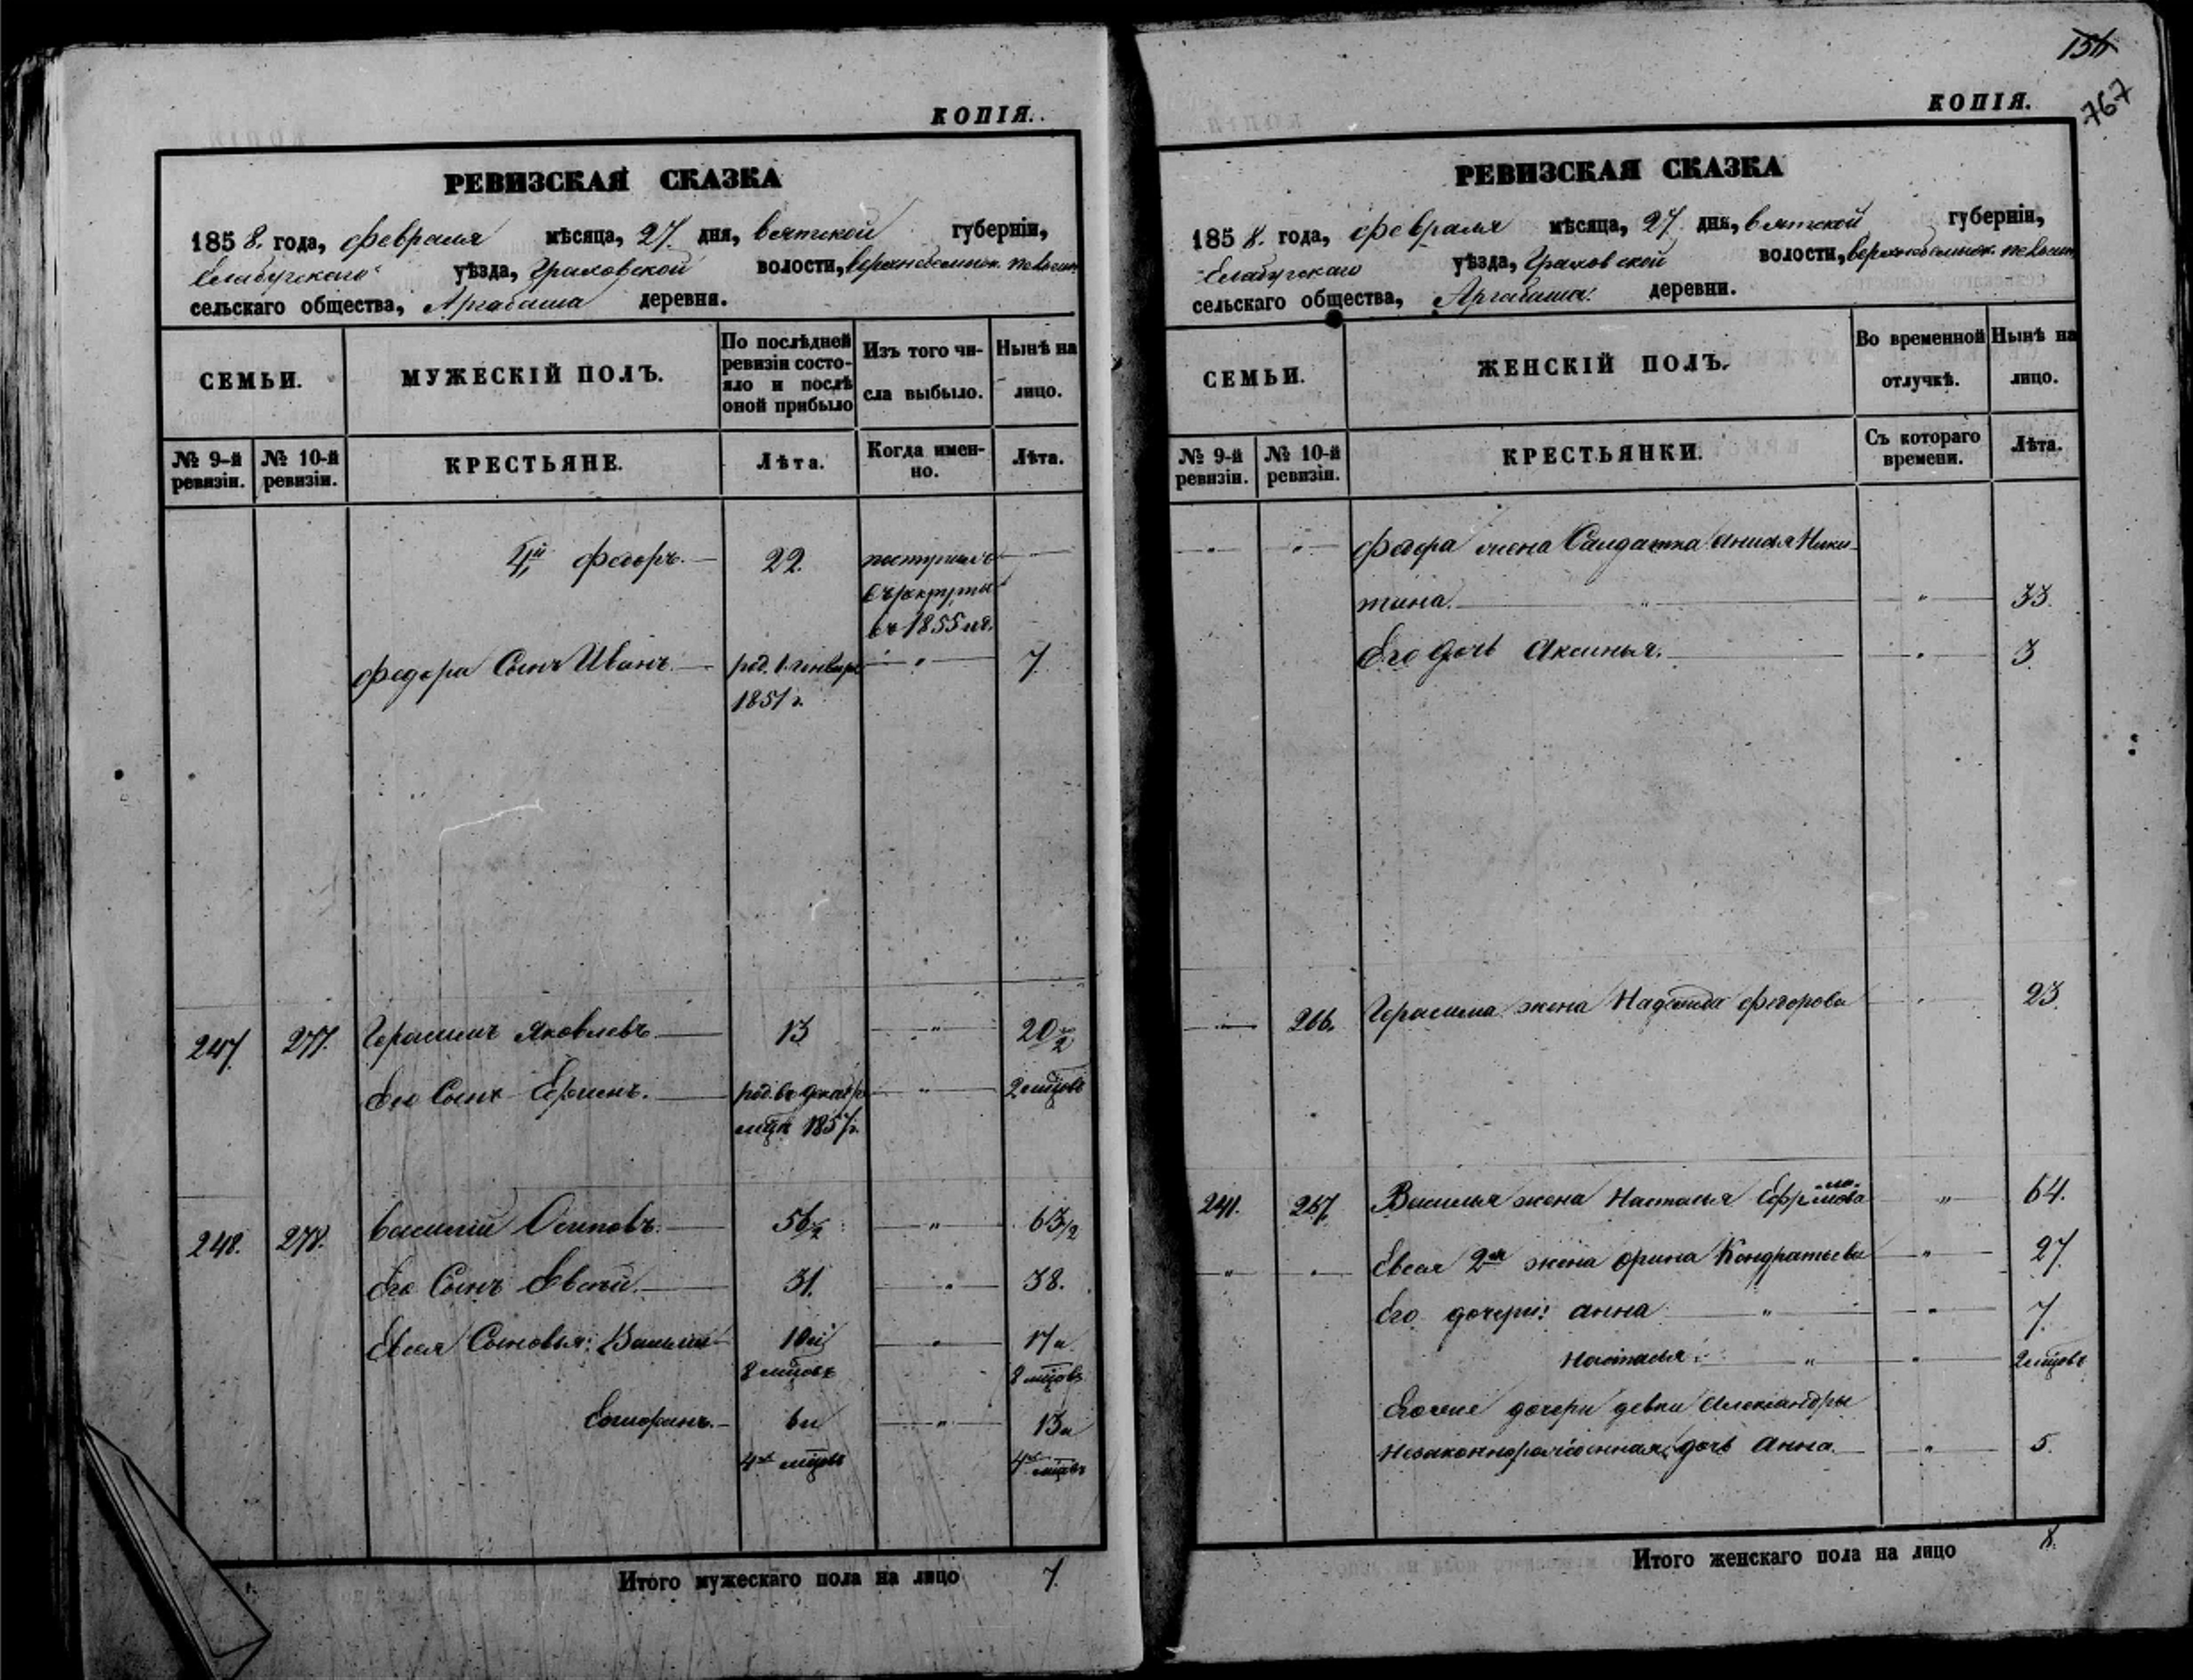 КОПІЯ.
РЕВИЗСКАЯ СКАЗКА
1858. года, февраля мѣсяца, 27. дня, вятской губерніи,
Елабугскаго уѣзда, Граховской волости,
сельскаго общества, Аргабаша деревня.
СЕМЬИ.
МУЖЕСКІЙ ПОЛЪ.
По послѣдней
ревизіи состо-
яло и послѣ
оной прибыло
Изъ того чи-
сла выбыло.
Нынѣ на
лицо.
№ 9-й
ревизіи.
№ 10-й
ревизіи.
КРЕСТЬЯНЕ.
Лѣта.
Когда имен-
но.
Лѣта.
4й Федоръ. 22.
въ рекруты
въ 1855 г.
Федора Сынъ Иванъ. род. 1. генваря 7.
1851 г.
247. 277. Герасимъ Яковлевъ 13 20 1/2
Его Сынъ род. въ декабрѣ 2 мцовъ
мцѣ 1857 г.
248. 278. Василій Осиповъ. 56 1/2 63 1/2
Его Сынъ Евсей. 31. 38.
Евсея Сыновья: Василій 10 и 17 и
8 мцовъ 8 мцовъ
6 и 13 и
4хъ мцовъ 4хъ мцовъ
Итого мужескаго пола на лицо 7.
156
767
КОПІЯ.
РЕВИЗСКАЯ СКАЗКА
1858. года, февраля мѣсяца, 27. дня, вятской губерніи,
Елабугскаго уѣзда, Граховской волости,
сельскаго общества, Аргабаша. деревни.
СЕМЬИ.
ЖЕНСКІЙ ПОЛЪ.
Во временной
отлучкѣ.
Нынѣ на
лицо.
№ 9-й
ревизіи.
№ 10-й
ревизіи.
КРЕСТЬЯНКИ.
Съ котораго
времени.
Лѣта.
Федора жена Салдатка Ники-
тина. 33.
Его дочь Аксинья. 3
266. Герасима жена Надежда Федорова 23.
241. 267. Василья жена Наталья Ефремова 64.
Евсея 2я жена Орина Кондратьева 27.
Его дочери: Анна 7.
Наталья. 2 мцовъ
Егоже дочери девки Александры
Незаконнорожденная дочь Анна. 5.
Итого женскаго пола на лицо 8.